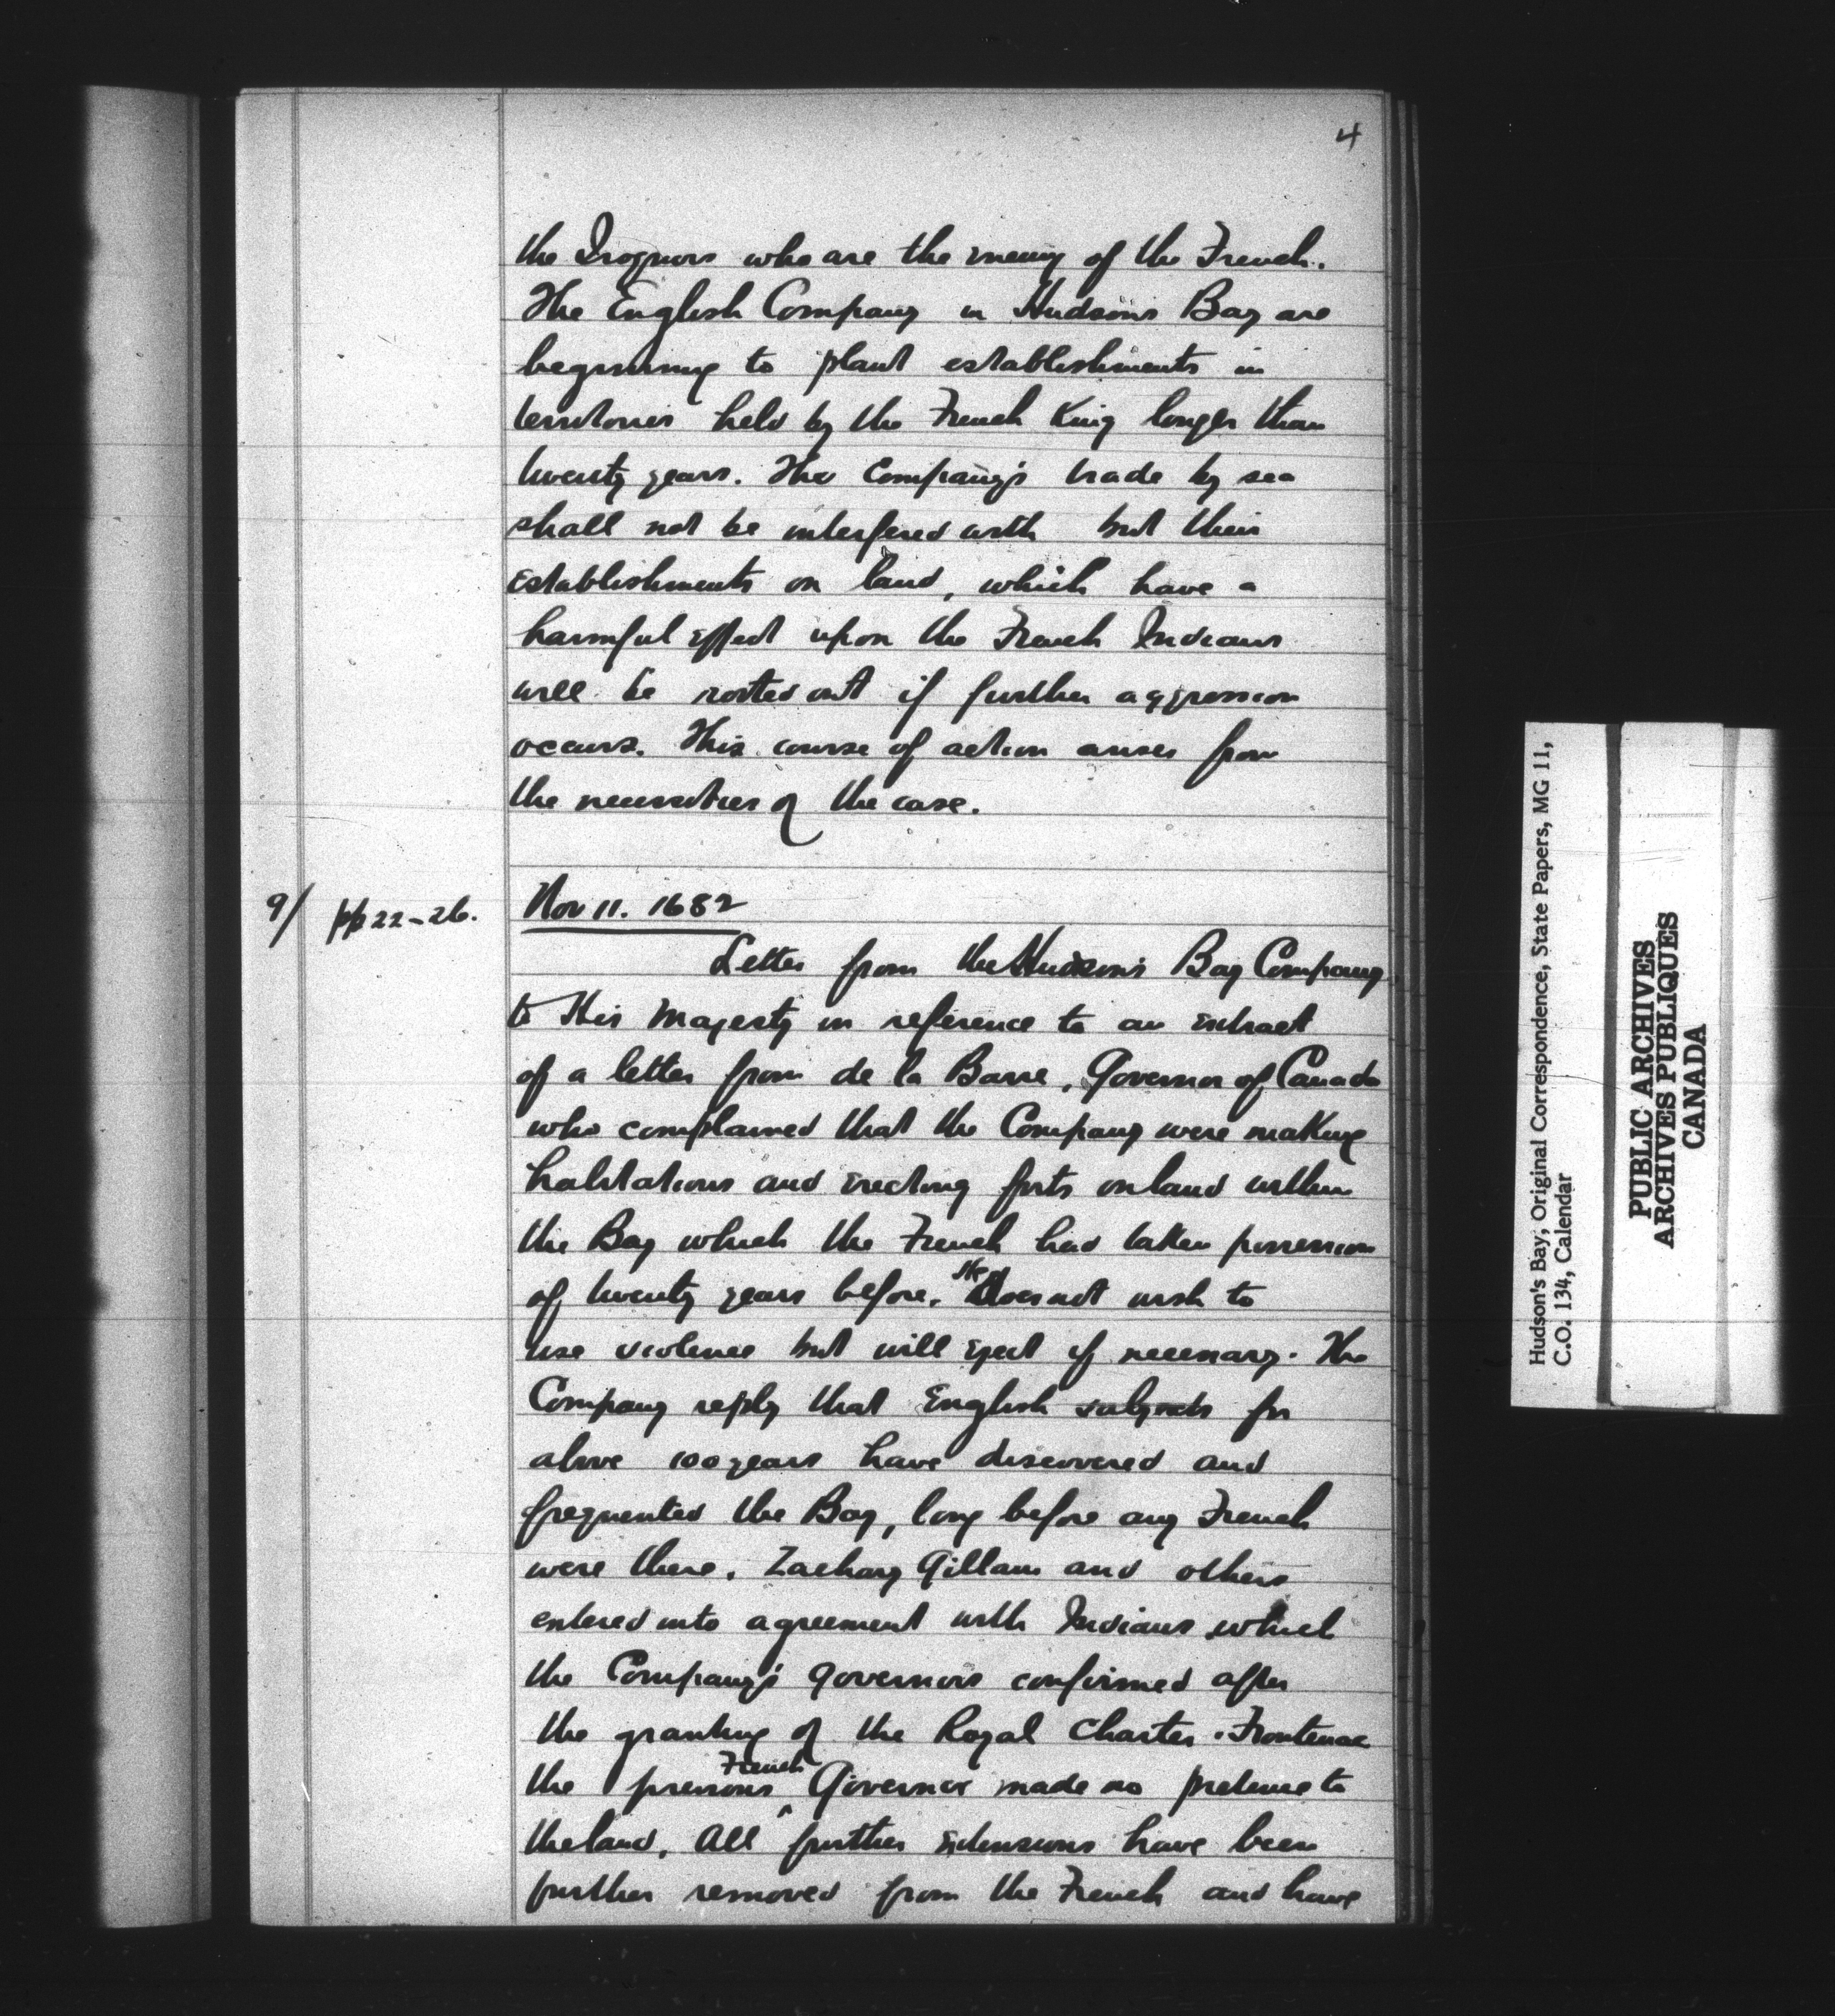 4
the Iroquois who are the enemy of the French.
The English Company in Hudson's Bay are
beginning to plant establishments in
territories held by the French King longer than
twenty years. The Company's trade by sea
shall not be interfered with but their
establishments on land, which have a
harmful effect upon the French Indians
will be rooted out if further aggression
occurs. This course of action arises from
the necessities of the case.
9/ pp 22-26. Nov 11. 1682
Letter from the Hudson's Bay Company
to His Majesty in reference to an extract
of a letter from de la Barre, Governor of Canada
who complained that the Company were making
habitations and erecting forts on land within
the Bay which the French had taken possession
of twenty years before. He does not wish to
use violence but will eject if necessary. The
Company reply that English subjects for
above 100 years have discovered and
frequented the Bay, long before any French
were there. Zachary Gillam and others
entered into agreement with Indians which
the Company's governors confirmed after
the granting of the Royal Charter. Frontenac
the previous French Governor made no pretence to
the land. All further extensions have been
further removed from the French and have
Hudson's Bay, Original Correspondence, State Papers, MG 11,
C.O. 134, Calendar
PUBLIC ARCHIVES
ARCHIVES PUBLIQUES
CANADA